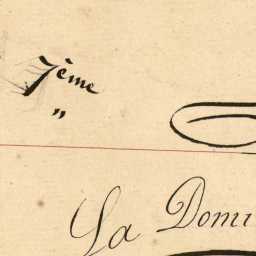 7ème
"
La Domi